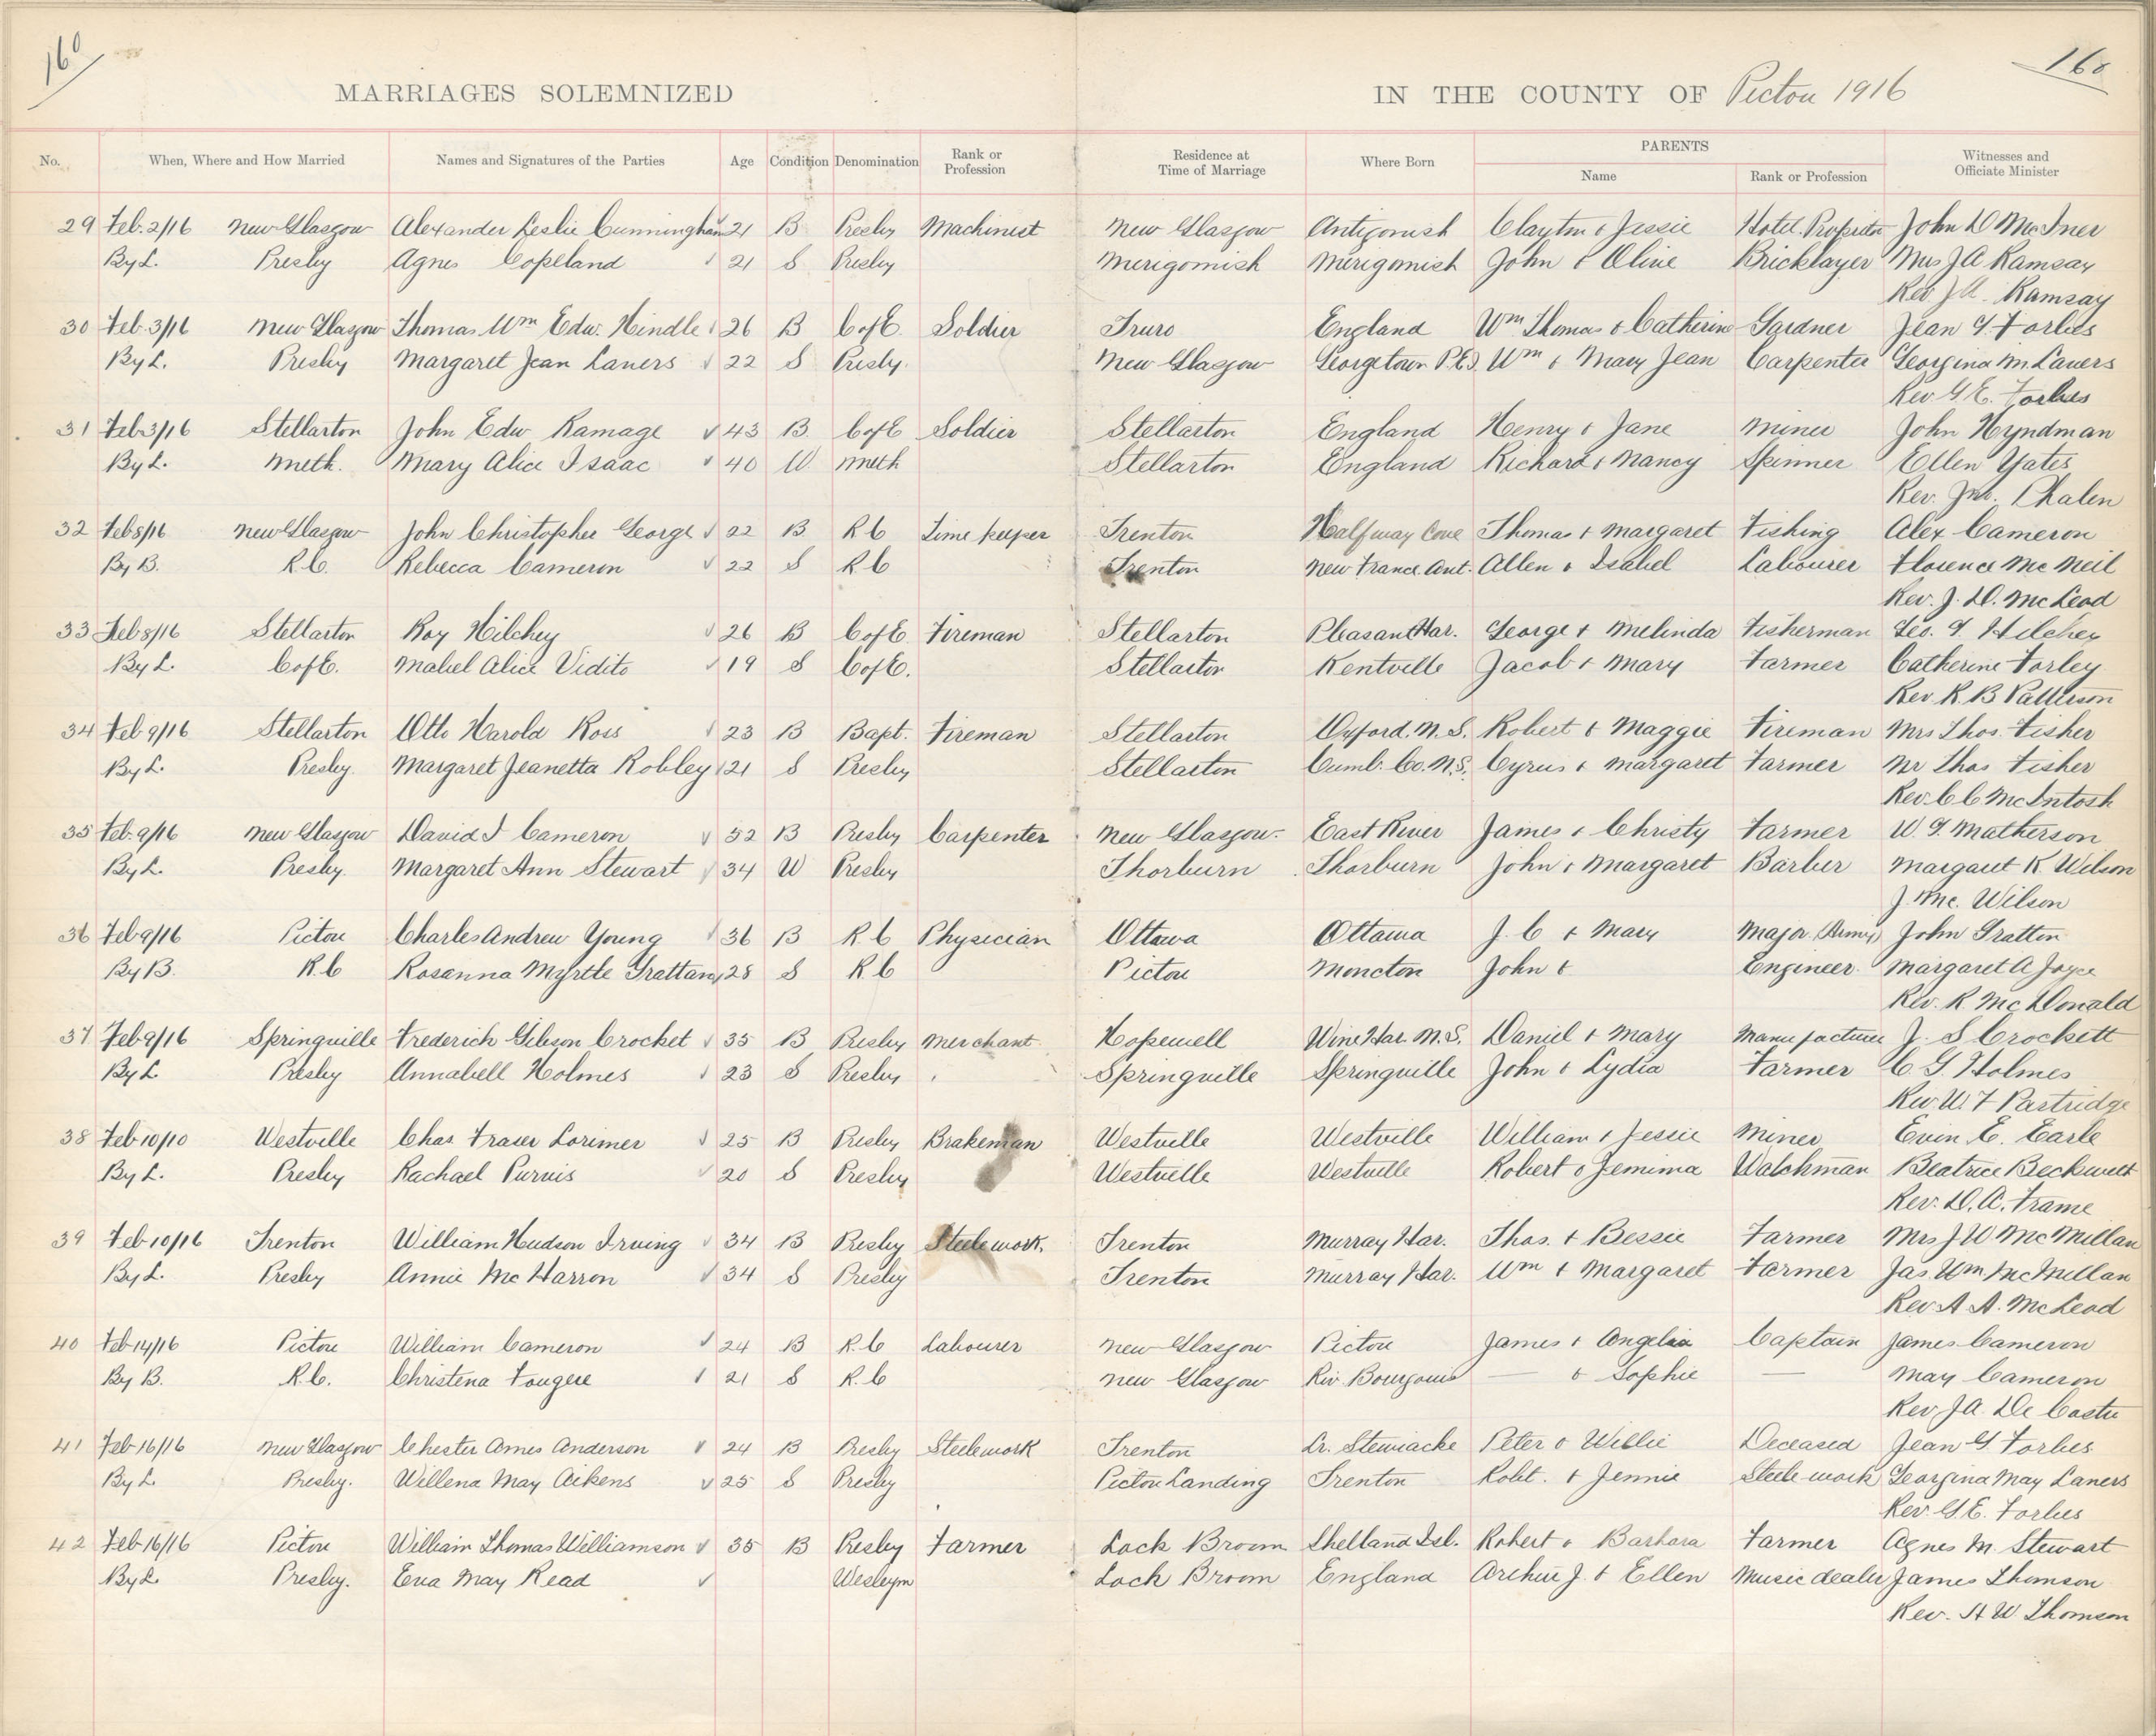 160
160
MARRIAGES SOLEMNIZED IN THE COUNTY OF Pictou 1916
No. When, Where and How Married Names and Signatures of the Parties Age Condition Denomination Rank or Profession Residence at Time of Marriage Where Born PARENTS Name Rank or Profession Witnesses and Officiate Minister
29 Feb. 2/16 New Glasgow Alexander Leslie Cunningham 21 B Presby Machinest New Glasgow Antigonish Clayton & Jessie Hotel Proprietor John D McIner
By L. Presby Agnes Copeland 21 S Presby Merigomish Merigomish John & Olive Bricklayer Mrs J A Ramsay
Rev J A. Ramsay
30 Feb. 3/16 New Glasgow Thomas Wm Edw. Hindle 26 B C of E Soldier Truro England Wm Thomas & Catherine Gardner Jean G. Forbes
By L. Presby Margaret Jean Lavers 22 S Presby. New Glasgow Georgetown P.E.I. Wm & Mary Jean Carpenter Georgina M. Lavers
Rev G. E. Forbes
31 Feb 3/16 Stellarton John Edw Ramage 43 B C of E Soldier Stellarton England Henry & Jane Miner John Hyndman
By L. Meth. Mary Alice Isaac 40 W Meth Stellarton England Richard & Nancy Spinner Ellen Yates
Rev. Jno. Phalen
32 Feb 8/16 New Glasgow John Christopher George 22 B R C Time keeper Trenton Halfway Cove Thomas & Margaret Fishing Alex Cameron
By B. R.C. Rebecca Cameron 22 S R C Trenton New France. Ant. Allen & Isabel Labourer Florence McNeil
Rev. J. D. McLeod
33 Feb 8/16 Stellarton Roy Hilchey 26 B C of E Fireman Stellarton Pleasant Har. George & Melinda Fisherman Geo. G. Hilchey
By L. C of E. Mabel Alice Vidito 19 S C of E. Stellarton Kentville Jacob & Mary Farmer Catherine Forley
Rev R. B Patterson
34 Feb 9/16 Stellarton Otto Harold Ross 23 B Bapt. Fireman Stellarton Oxford. N.S. Robert & Maggie Fireman Mrs Thos. Fisher
By L. Presby. Margaret Jeanetta Robley 21 S Presby Stellarton Cumb. Co. N.S. Cyrus & Margaret Farmer Mr Thos Fisher
Rev. C C McIntosh
35 Feb. 9/16 New Glasgow David I Cameron 52 B Presby Carpenter New Glasgow. East River James & Christy Farmer W. G. Matherson
By L. Presby. Margaret Ann Stewart 34 W Presby Thorburn Thorburn John & Margaret Barber Margaret K Wilson
J. Mc. Wilson
36 Feb 9/16 Pictou Charles Andrew Young 36 B R C Physician Ottawa Ottawa J. C & Mary Major (Army) John Grattan
By B. R.C Rosanna Myrtle Grattan 28 S R C Pictou Moncton John & Engineer. Margaret A Joyce
Rev. R. McDonald
37 Feb 9/16 Springville Frederich Gibson Crocket 35 B Presby Merchant Hopewell Wine Har. N.S. Daniel & Mary Manufacturer J. S Crockett
By L Presby Annabell Holmes 23 S Presby Springville Springville John & Lydia Farmer C. G. Holmes
Rev W. F Partridge
38 Feb 10/10 Westville Chas Fraser Lorimer 25 B Presby Brakeman Westville Westville William & Jessie Miner E. Earle
By L. Presby Rachael Purvis 20 S Presby Westville Westville Robert & Jemima Watchman Beatrice Beckwith
Rev. D. A. Frame
39 Feb 10/16 Trenton William Hudson Irving 34 B Presby Steelework. Trenton Murray Har. Thos. & Bessie Farmer Mrs J W McMillan
By L. Presby Annie McHarron 34 S Presby Trenton Murray Har. Wm & Margaret Farmer Jas. Wm McMillan
Rev A A. McLeod
40 Feb 14/16 Pictou William Cameron 24 B R. C Labourer New Glasgow Pictou James & Angelia Captain James Cameron
By B. R.C. Christena Fougere 21 S R. C New Glasgow Riv. Bourgouis — & Sophie — May Cameron
Rev J A. De Coste
41 Feb 16/16 New Glasgow Chester Ames Anderson 24 B Presby Steelework Trenton Lr. Stewiacke Peter & Willie Deceased Jean G. Forbes
By L. Presby. Willena May Aikens 25 S Presby Pictou Landing Trenton Robt. & Jennie Steele work Georgina May Lavers
Rev. G. E. Forbes
42 Feb 16/16 Pictou William Thomas Williamson 35 B Presby Farmer Lock Broom Shelland Isl. Robert & Barbara Farmer Agnes M. Stewart
By L. Presby. Eva May Read Wesleyn Lock Broom England Arthur J. & Ellen Music dealer James Thomson
Rev. H W. Thomson